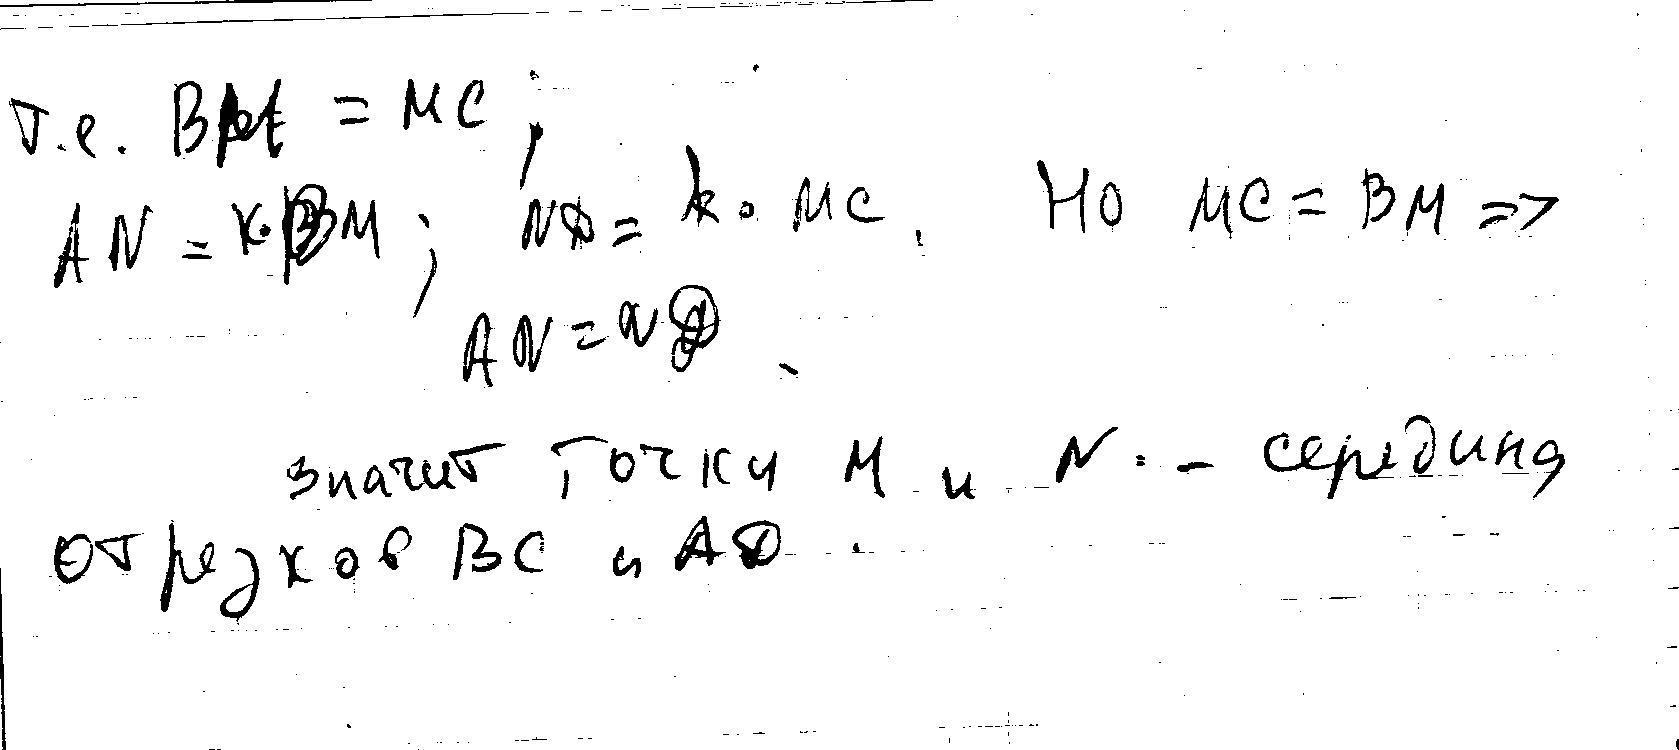 т.е. BM = MC;
AN = k·BM; ND = k·MC. Но MC = BM =>
AN = ND.
значит точки M и N - середина
отрезков BC и AD.